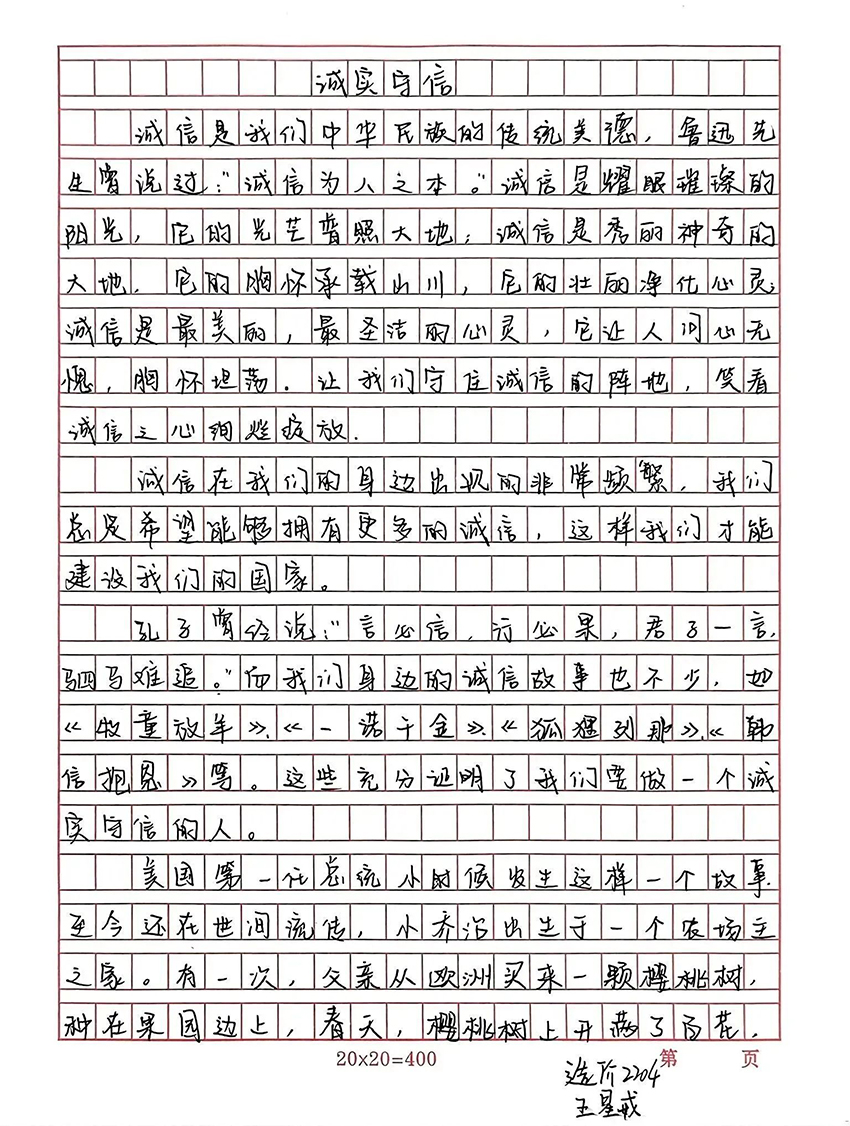 诚实守信
诚信是我们中华民族的传统美德，鲁迅先
生曾说过:"诚信为人之本。"诚信是耀眼璀璨的
阳光，它的光芒普照大地；诚信是秀丽神奇的
大地，它的胸怀承载山川，它的壮丽净化心灵；
诚信是最美丽，最圣洁的心灵，它让人问心无
愧，胸怀坦荡．让我们守住诚信的阵地，笑看
诚信之心绚烂绽放．
诚信在我们的身边出现的非常频繁，我们
总是希望能够拥有更多的诚信，这样我们才能
建设我们的国家。
孔子曾经说:"言必信，行必果，君子一言，
驷马难追。"而我们身边的诚信故事也不少，如
《牧童放羊》、《一诺千金》、《狐狸列那》、《韩
信抱恩》等。这些充分证明了我们要做一个诚
实守信的人。
美国第一任总统小时候发生这样一个故事
至今还在世间流传，小乔治出生于一个农场主
之家。有一次，父亲从欧洲买来一颗樱桃树，
种在果园边上，春天，樱桃树上开满了白花，
20x20=400
第 页
造价2204
王星戒